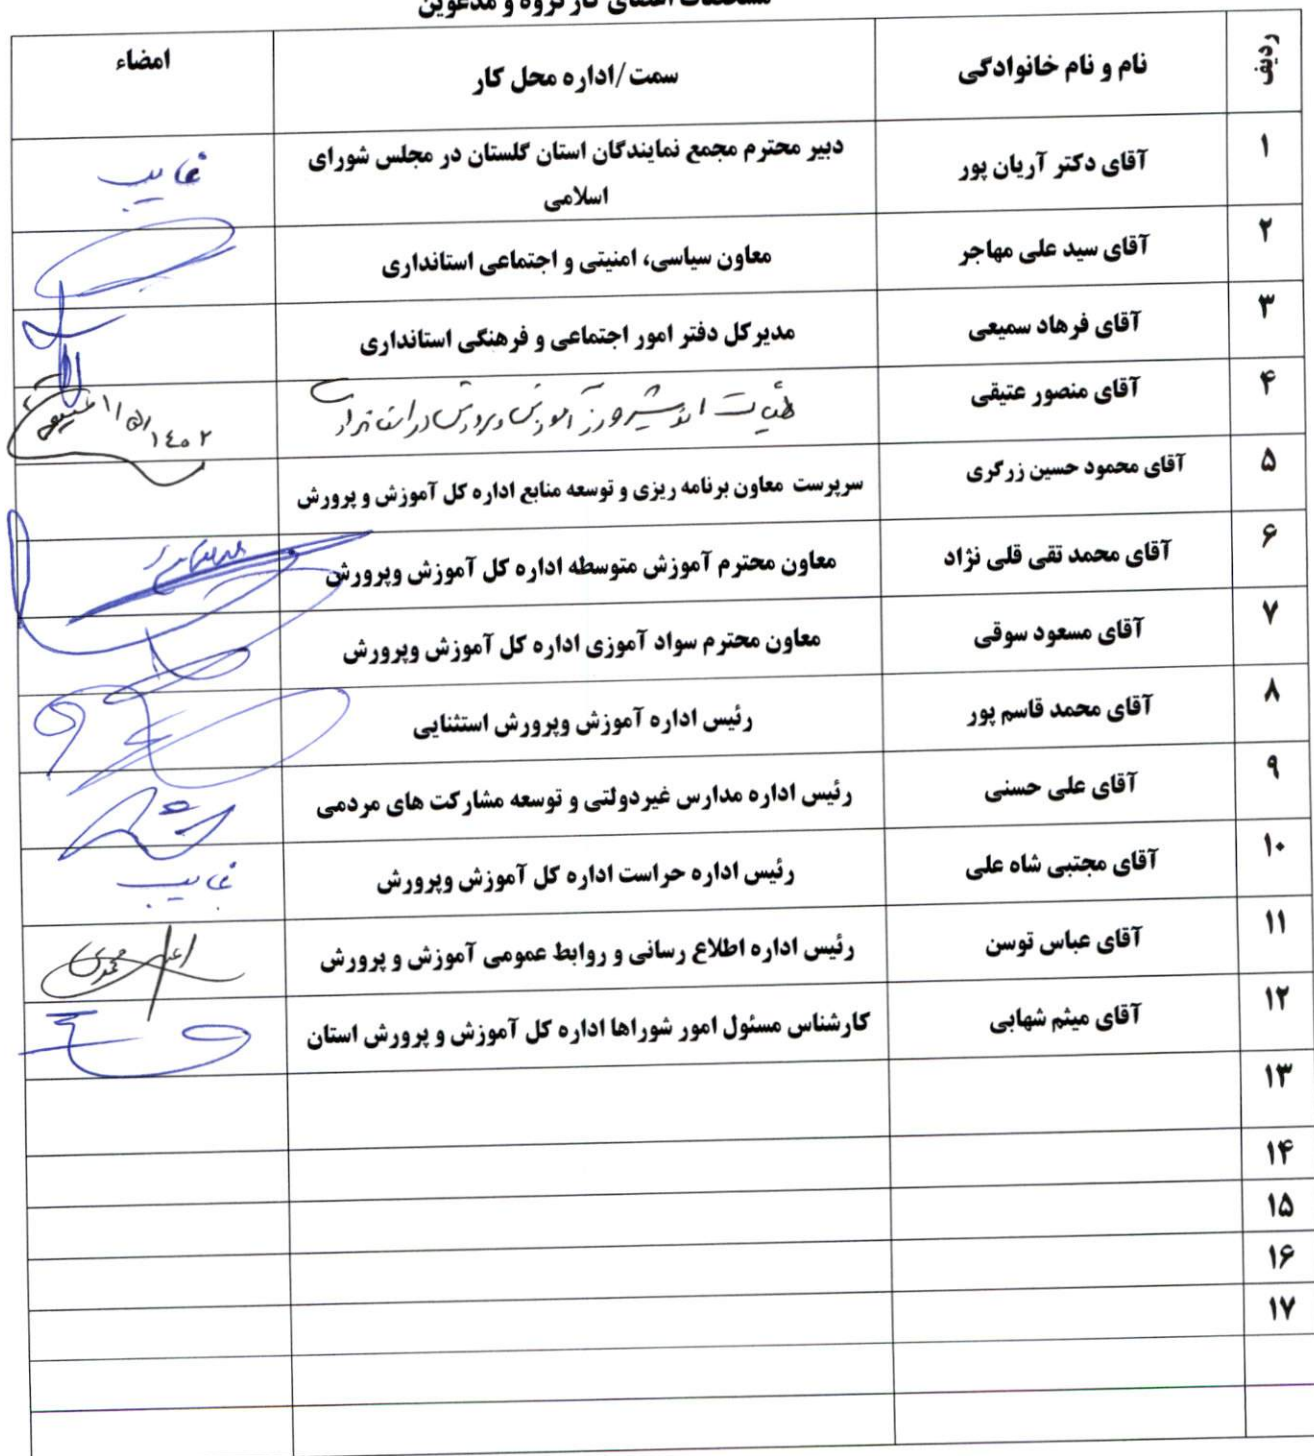 مشخصات اعضای کارگروه و مدعوین
ردیف نام و نام خانوادگی سمت/اداره محل کار امضاء
۱ آقای دکتر آریان پور دبیر محترم مجمع نمایندگان استان گلستان در مجلس شورای
اسلامی غایب
۲ آقای سید علی مهاجر معاون سیاسی، امنیتی و اجتماعی استانداری
۳ آقای فرهاد سمیعی مدیرکل دفتر امور اجتماعی و فرهنگی استانداری
۴ آقای منصور عتیقی
۵ آقای محمود حسین زرگری سرپرست معاون برنامه ریزی و توسعه منابع اداره کل آموزش و پرورش
۶ آقای محمد تقی قلی نژاد معاون محترم آموزش متوسطه اداره کل آموزش وپرورش
۷ آقای مسعود سوقی معاون محترم سواد آموزی اداره کل آموزش وپرورش
۸ آقای محمد قاسم پور رئیس اداره آموزش وپرورش استثنایی
۹ آقای علی حسنی رئیس اداره مدارس غیردولتی و توسعه مشارکت های مردمی
۱۰ آقای مجتبی شاه علی رئیس اداره حراست اداره کل آموزش وپرورش غایب
۱۱ آقای عباس توسن رئیس اداره اطلاع رسانی و روابط عمومی آموزش و پرورش
۱۲ آقای میثم شهابی کارشناس مسئول امور شوراها اداره کل آموزش و پرورش استان
۱۳
۱۴
۱۵
۱۶
۱۷